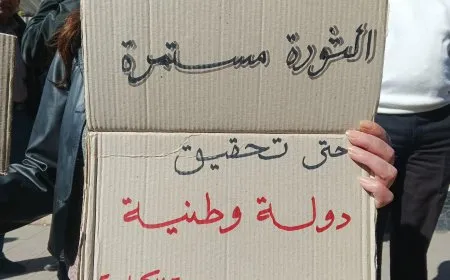 الثورة مستمرة
حتى تحقيق
دولة وطنية